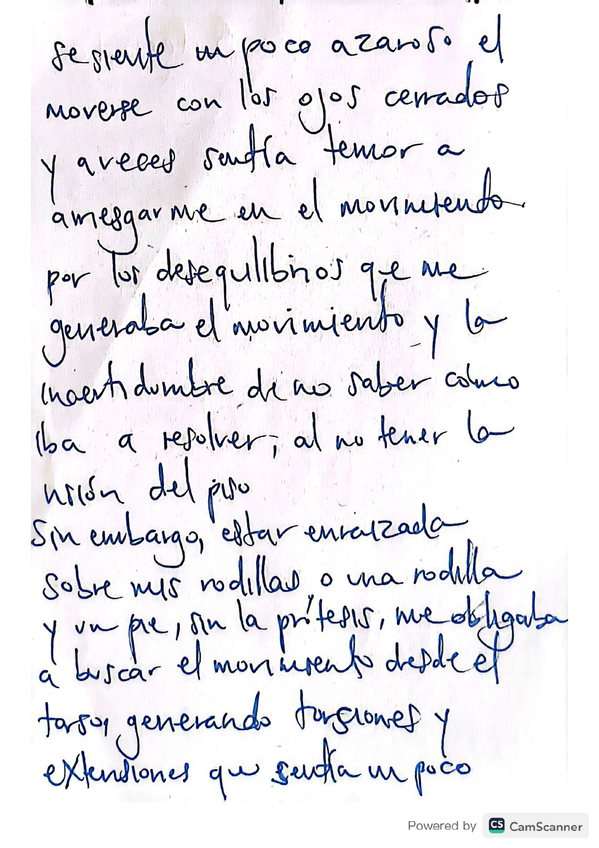 se siente un poco azaroso el
moverse con los ojos cerrados
y aveces sentía temor a
arriesgarme en el movimiento
por los desequilibrios que me
generaba el movimiento y la
incertidumbre de no saber cómo
iba a resolver, al no tener la
visión del piso
Sin embargo, estar enraizada
sobre mis rodillas o una rodilla
y un pie, sin la prótesis, me obligaba
a buscar el movimiento desde el
torso, generando torsiones y
extensiones que sentía un poco
Powered by CS CamScanner